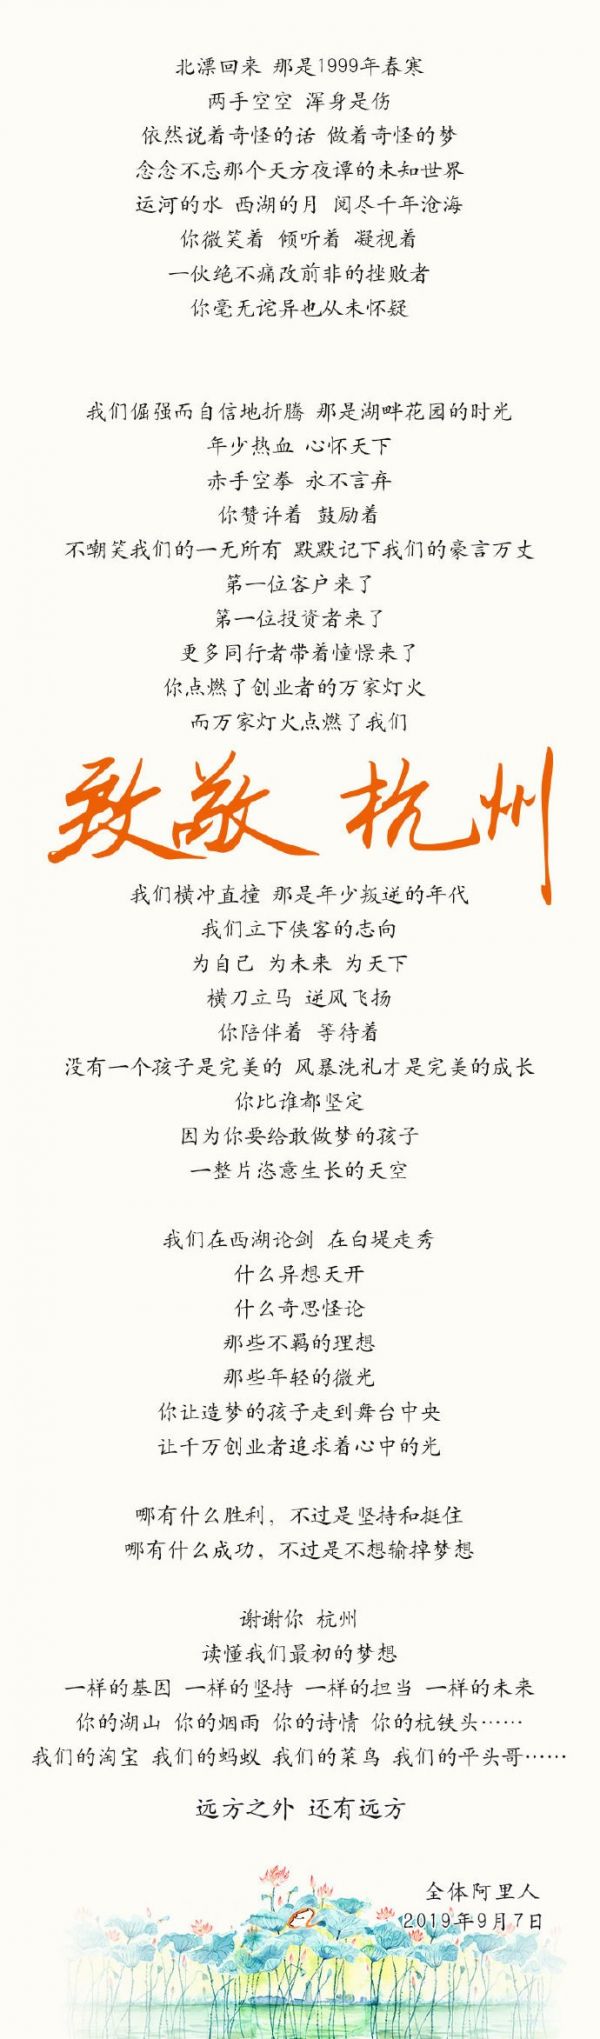 北漂回来 那是1999年春寒
两手空空 浑身是伤
依然说着奇怪的话 做着奇怪的梦
念念不忘那个天方夜谭的未知世界
运河的水 西湖的月 阅尽千年沧海
你微笑着 倾听着 凝视着
一伙绝不痛改前非的挫败者
你毫无诧异也从未怀疑
我们倔强而自信地折腾 那是湖畔花园的时光
年少热血 心怀天下
赤手空拳 永不言弃
你赞许着 鼓励着
不嘲笑我们的一无所有 默默记下我们的豪言万丈
第一位客户来了
第一位投资者来了
更多同行者带着憧憬来了
你点燃了创业者的万家灯火
而万家灯火点燃了我们
致敬 杭州
我们横冲直撞 那是年少叛逆的年代
我们立下侠客的志向
为自己 为未来 为天下
横刀立马 逆风飞扬
你陪伴着 等待着
没有一个孩子是完美的 风暴洗礼才是完美的成长
你比谁都坚定
因为你要给敢做梦的孩子
一整片恣意生长的天空
我们在西湖论剑 在白堤走秀
什么异想天开
什么奇思怪论
那些不羁的理想
那些年轻的微光
你让造梦的孩子走到舞台中央
让千万创业者追求着心中的光
哪有什么胜利，不过是坚持和挺住
哪有什么成功，不过是不想输掉梦想
谢谢你 杭州
读懂我们最初的梦想
一样的基因 一样的坚持 一样的担当 一样的未来
你的湖山 你的烟雨 你的诗情 你的杭铁头……
我们的淘宝 我们的蚂蚁 我们的菜鸟 我们的平头哥……
远方之外 还有远方
全体阿里人
2019年9月7日